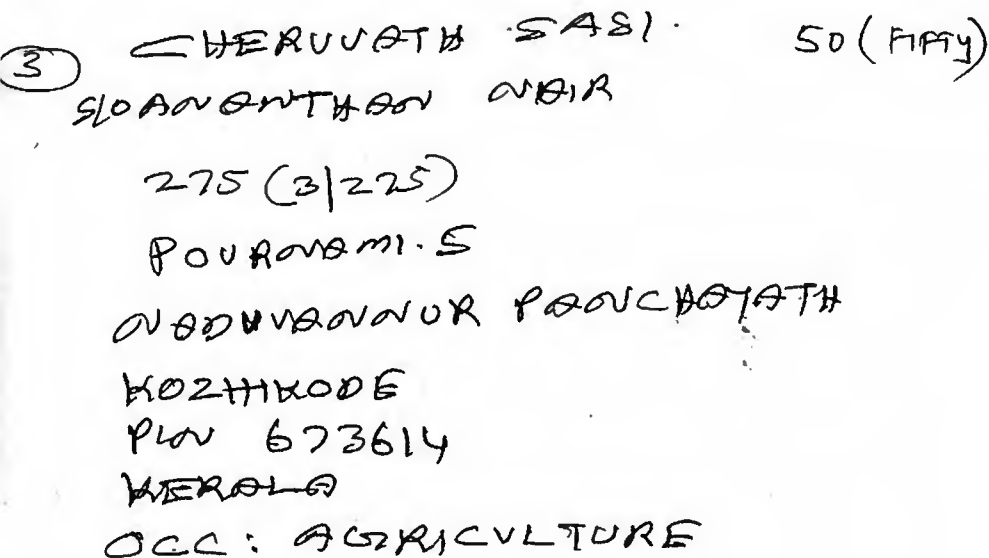 3 CHERUVATH SASI. 50 (FIFTY)
S/O ANANTHAN NAIR
275 (3/225)
POURNAMI.S
NADUVANNUR PANCHAYATH
KOZHIKODE
PIN 673614
KERALA
OCC: AGRICULTURE